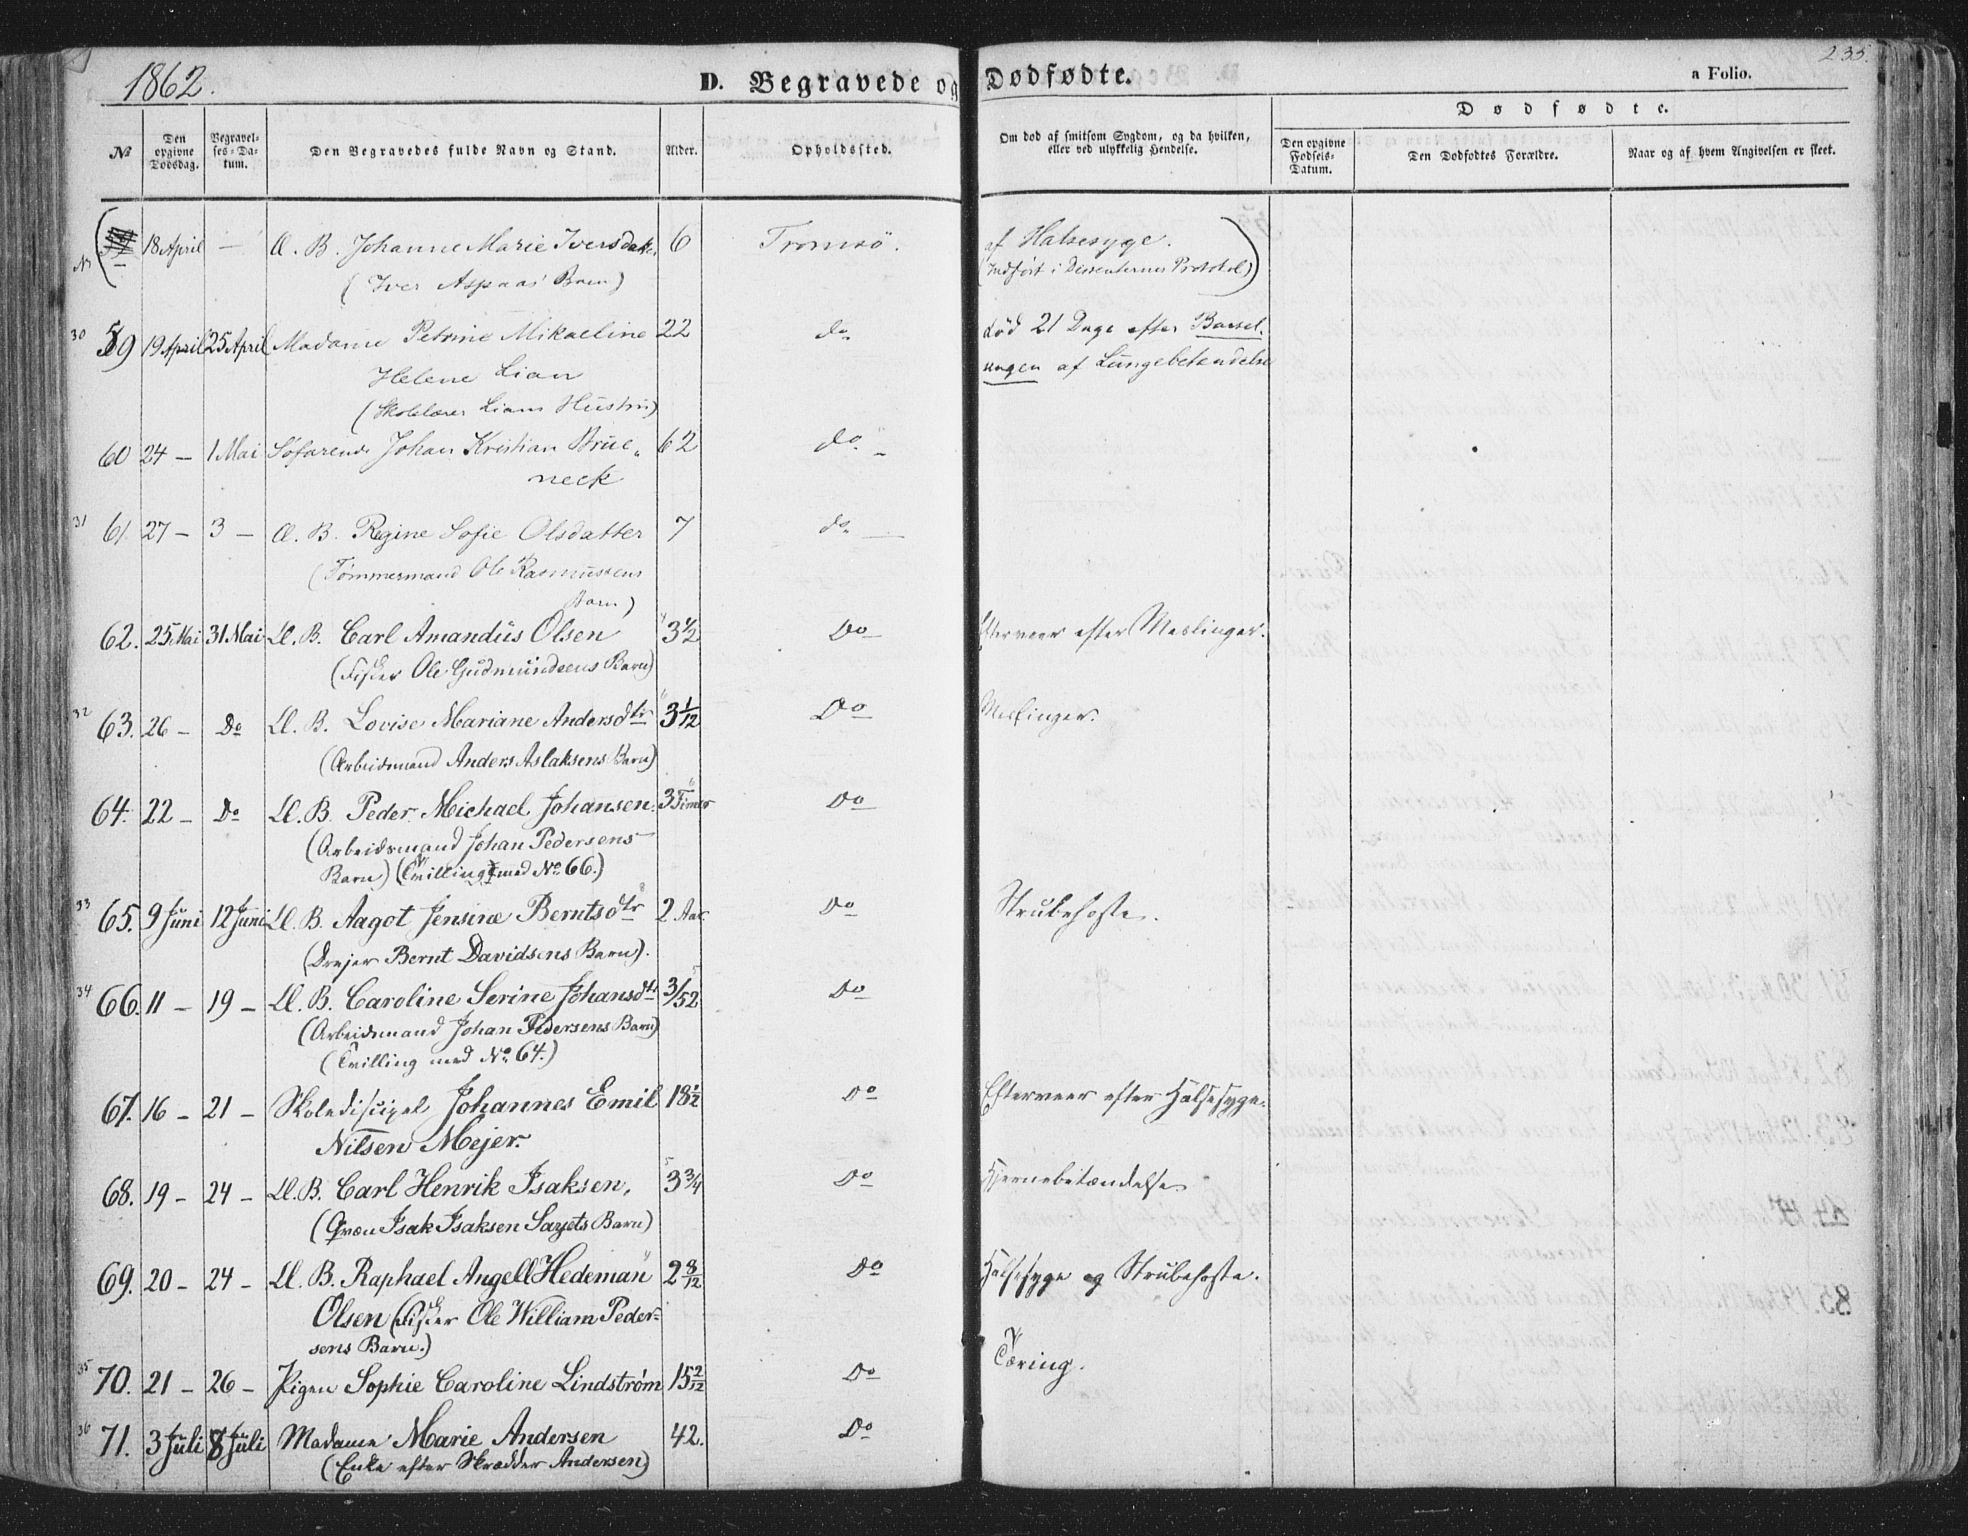 235.
1862.
D. Begravede og Dødfødte.
a Folio.
Dødfødte.
No
Den opgivne Dødsdag.
Begravelses-Datum.
Den Begravedes fulde Navn og Stand.
Alder.
Opholdssted.
Om død af smitsom Sygdom, og da hvilken, eller ved ulykkelig Hendelse.
Den opgivne Fødsels-Datum.
Den Dødfødtes Forældre.
Naar og af hvem Angivelsen er skeet.
18 April — B. Johanne Marie Iversdatr. 6 Tromsö. af Halsesyge.
(Iver Aspaas' Barn) (Indført i Dissenternes Protokol)
30 59 19 April 25 April Madame Petrine Mikaeline 22 do død 21 Dage efter Barsel-
Helene Lian ungen af Lungebetendelse
(Skolelærer Lians Hustru)
60 24 — 1 Mai Søfarende Johan Kristian Brue„ 62 do. „
neck
31 61. 27 — 3 — B. Regine Sofie Olsdatter 7 do —
(Tømmermand Ole Rasmussens
Barn)
62. 25 Mai 31 Mai U. B. Carl Amandus Olsen 3½ Do Efterveer efter Meslinger.
(Fisker Ole Gudmundsens Barn)
32 63. 26 — Do U. B. Lovise Mariane Andersdtr 3 1/12 Do Meslinger.
(Arbeidsmand Anders Aslaksens Barn)
64. 22 — Do U. B. Peder Michael Johansen. 3 Timer Do
(Arbeidsmand Johan Pedersens
Barn) (Tvilling med No 66.)
33 65. 9 Juni 12 Juni U. B. Aagot Jensine Berntsdtr 2 Aar Do Strubehoste.
(Drejer Bernt Davidsens Barn).
34 66. 11 — 19 — U. B. Caroline Serine Johansdtr 3/52 Do
(Arbeidsmand Johan Pedersens Barn)
(Tvilling med No 64.)
67. 16 — 21 — Skoledisipel Johannes Emil 18½ Do Efterveer efter Halsesyge.
Nilsen Mejer.
68. 19 — 24 — U. B. Carl Henrik Isaksen, 3¾ Do Hjernebetændelse
(Qvæn Isak Isaksen Sayets Barn)
69. 20 — 24 — U. B. Raphael Angell Hedeman 2 8/12 Do Halsesyge og Strubehoste.
Olsen (Fisker Ole William Peder-
sens Barn.)
35 70. 21 — 26 — Pigen Sophie Caroline Lindstrøm 15 2/12 Do Tæring.
36 71. 3 Juli 8 Juli Madame Marie Andersen 42. Do
(Enke efter Skrædder Andersen)